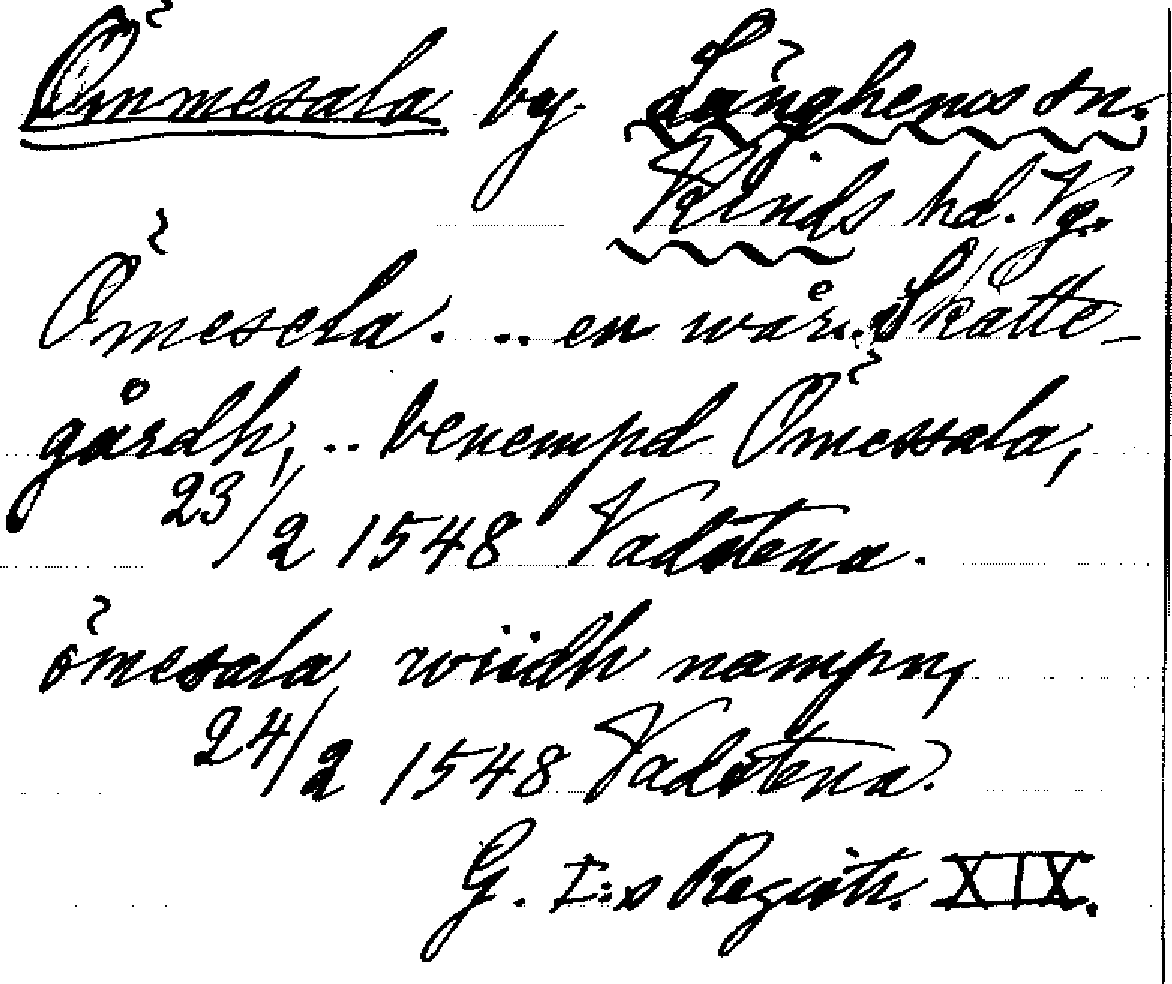 Ömmesala by Länghems sn.
Kinds hd. Vg.
Ömesela. .. en wår.. Skatte-
gårdh, .. benempd Ömessala,
23/2 1548 Vadstena.
ömesala wiidh nampn,
24/2 1548 Vadstena.
G. I:s Registr. XIX.